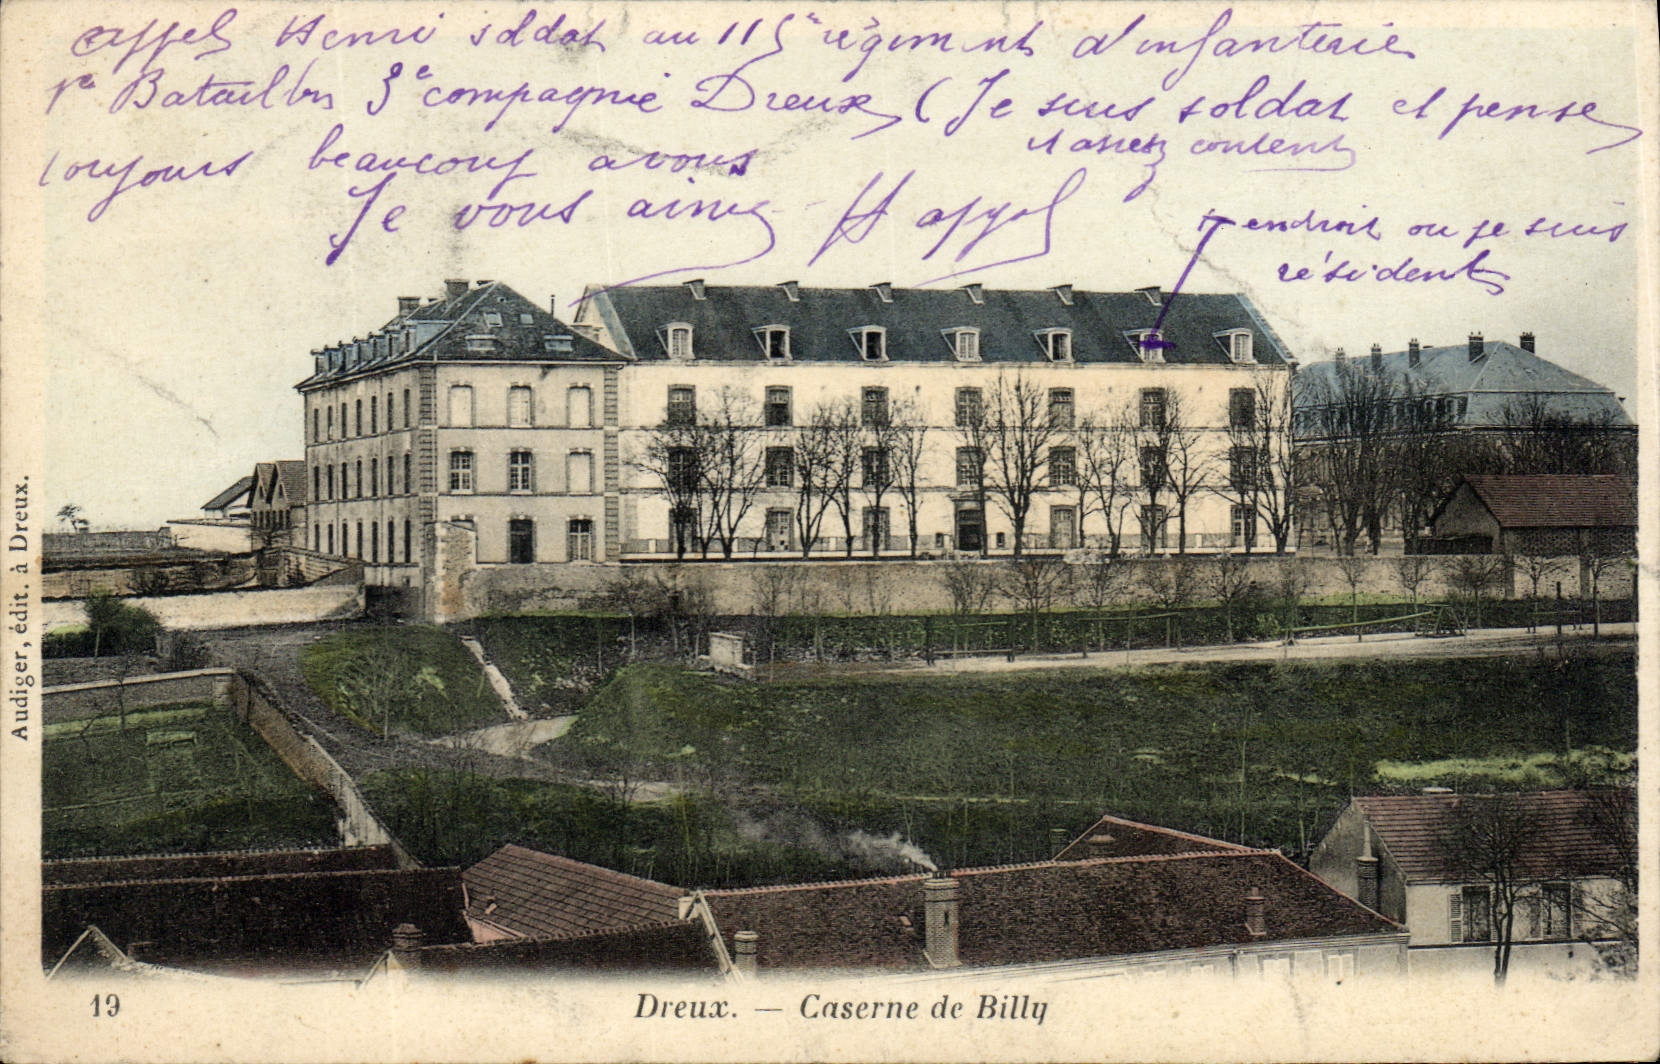 appel Henri soldat au 115e régiment d'infanterie
1re Bataillon 3e compagnie Dreux (Je suis soldat et pense
toujours beaucoup a vous
et assez content
Je vous aime H appel
endroit ou je suis
résident
Audiger, édit. à Dreux.
19
Dreux. — Caserne de Billy